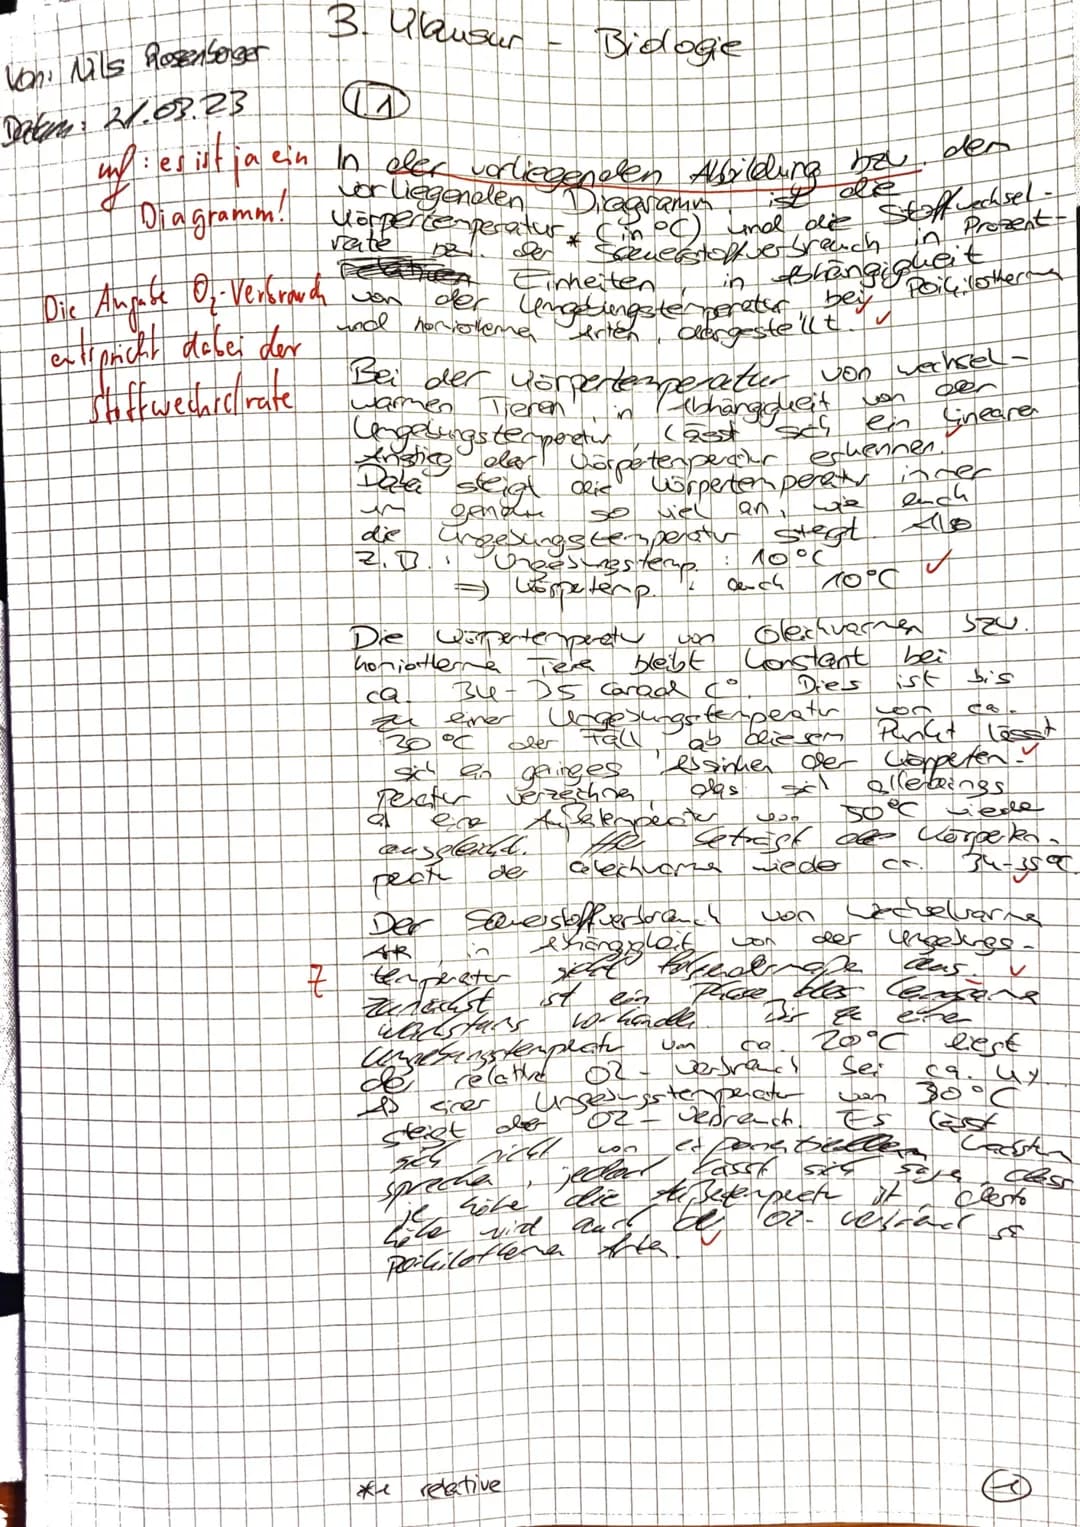 3. Klausur - Biologie
Von: Nils Rosenberger
Datum: 21.03.23
1.1
unf: es ist ja ein
Diagramm!
In der vorliegenden Abbildung bzw. dem
vorliegenden Diagramm, ist die
Körpertemperatur (in °C) und die Stoffwechsel-
rate bzw. der * Sauerstoffverbrauch in Prozent-
Einheiten, in Abhängigkeit
von der Umgebungstemperatur bei Poikilotherma
und homiotherma Arten, dargestellt.
Die Angabe O2-Verbrauch
entspricht dabei der
Stoffwechselrate
Bei der Körpertemperatur von wechsel-
warmen Tieren in Abhänggikeit von der
Umgebungstemperatur, lässt sich ein linearer
Anstieg der Körpertemperatur erkennen.
Dabei steigt die Körpertemperatur immer
um genau so viel an, wie auch
die Umgebungstemperatur steigt. Also
z.B.: Umgebungstemp. : 10°C
=> Körpertemp. : auch 10°C
Die Körpertemperatur von Gleichwarmen bzw.
homiotherma Tiere bleibt konstant bei
ca. 34-35 Garad C°. Dies ist bis
zu einer Umgebungstemperatur von ca.
30°C der Fall, ab diesem Punkt lässt
sich ein geringes absinken der Körpertem-
peratur verzeichnen, das sich allerdings
ab eine Außentemperatur von 50°C wieder
ausgleicht. beträgt die Körpertem-
peratur der Gleichwarma wieder ca. 34-35°C
Der Sauerstoffverbrauch von Wechselwarme
in Abhänggikeit von der Umgebungs-
temperatur sieht folgendermaße aus.
Z
zunächst ist ein Phase des langsame
wachstums vorhanden. Bis zu einer
Umgebungstemperatur von ca. 20°C liegt
der relative O2-verbrauch bei ca.
Ab einer Umgebungstemperatur von 30°C
steigt der O2-Verbrauch. Es lässt
sich nicht von exponentiellem Wachstum
sprechen, jedoch lässt sich sagen, dass
je höhe die Außentemperatur ist, desto
höher wird auch O2-verbrauch
Poikilotherma Arten.
* relative